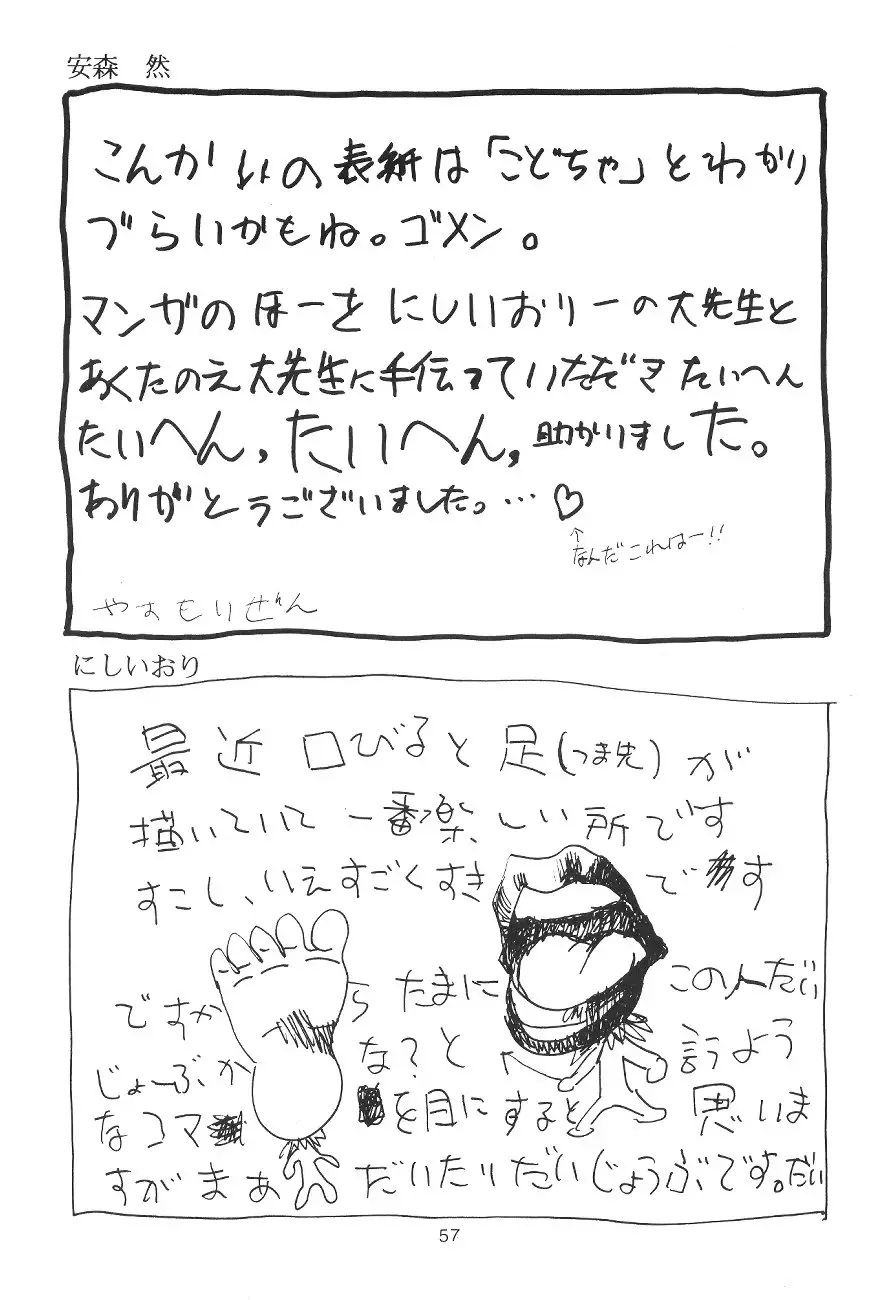 安森　然
こんかいの表紙は「こどちゃ」とわかり
づらいかもね。ゴメン。
マンガのほーを にしいおりーの大先生と
あくたのえ大先生に手伝っていただきたいへん
たいへん,たいへん,助かりました。
ありがとうございました。…♡
↑なんだこれはー!!
やすもりぜん
にしいおり
最近 口びると足(つま先)が
描いていて 一番楽しい所です
すこし、いえすごくすきです
ですから たまに この人だい
じょーぶかな?と 言うよう
なコマを目にすると 思いま
すが まあ だいたいだいじょうぶです。だい
57